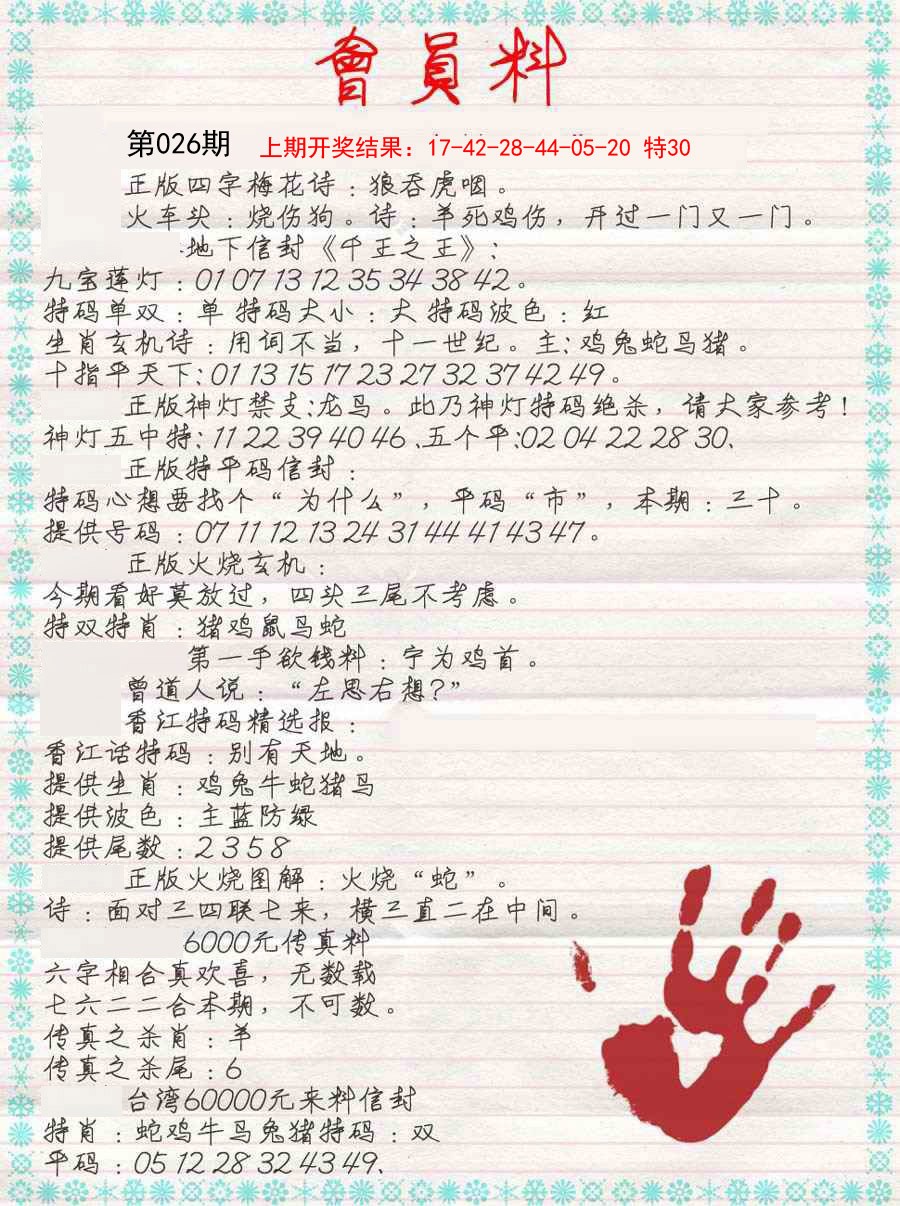 會員料
第026期 上期开奖结果：17-42-28-44-05-20 特30
正版四字梅花诗：狼吞虎咽。
火车头：烧伤狗。诗：羊死鸡伤，开过一门又一门。
地下信封《千王之王》：
九宝莲灯：01 07 13 12 35 34 38 42。
特码单双：单 特码大小：大 特码波色：红
生肖玄机诗：用词不当，十一世纪。主：鸡兔蛇鸟猪。
十指平天下：01 13 15 17 23 27 32 37 42 49。
正版神灯禁支：龙鸟。此乃神灯特码绝杀，请大家参考！
神灯五中特：11 22 39 40 46、五个平：02 04 22 28 30、
正版特平码信封：
特码心想要找个“为什么”，平码“市”，本期：三十。
提供号码：07 11 12 13 24 31 44 41 43 47。
正版火烧玄机：
今期看好莫放过，四头三尾不考虑。
特双特肖：猪鸡鼠鸟蛇
第一手欲钱料：宁为鸡首。
曾道人说：“左思右想？”
香江特码精选报：
香江话特码：别有天地。
提供生肖：鸡兔牛蛇猪鸟
提供波色：主蓝防绿
提供尾数：2 3 5 8
正版火烧图解：火烧“蛇”。
诗：面对三四联七来，横三直二在中间。
6000元传真料
六字相合真欢喜，无数载
七六二二合本期，不可数。
传真之杀肖：羊
传真之杀尾：6
台湾60000元来料信封
特肖：蛇鸡牛鸟兔猪特码：双
平码：05 12 28 32 43 49、